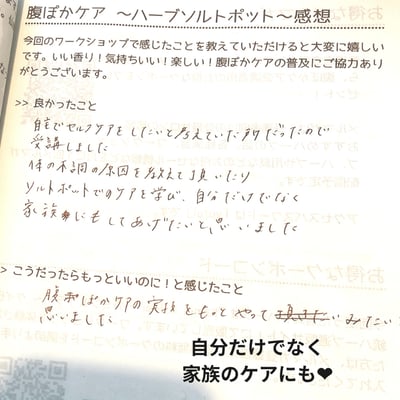 腹ぽかケア ～ハーブソルトポット～感想
今回のワークショップで感じたことを教えていただけると大変に嬉しい
です。いい香り！気持ちいい！楽しい！腹ぽかケアの普及にご協力あり
がとうございます。
>> 良かったこと
自宅でセルフケアをしたいと考えていた所だったので
受講しました
体の不調の原因を教えて頂いたり
ソルトポットでのケアを学び、自分だけでなく
家族にもしてあげたいと思いました
> こうだったらもっといいのに！と感じたこと
腹ぽかケアの実技をもっとやってみたいと
思いました
自分だけでなく
家族のケアにも❤